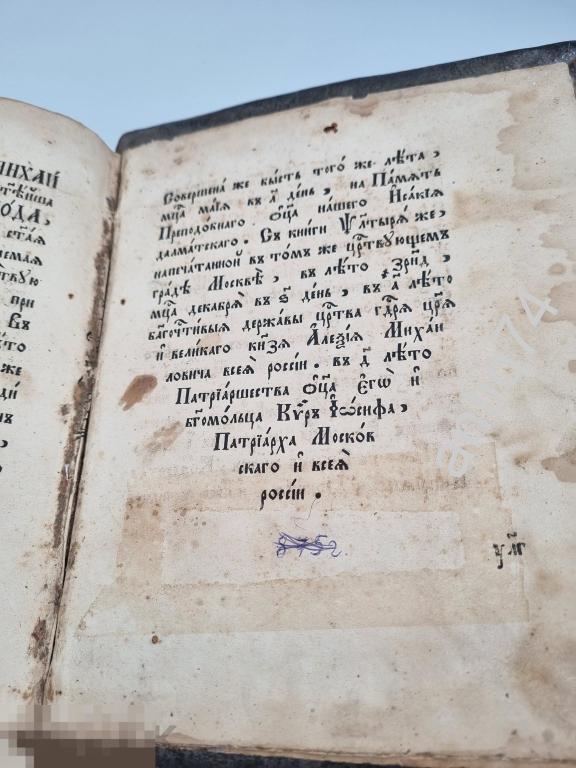 ИИХАЙ
ОДА,
СТАЯ
ЕМАЯ
ТВУЮ
ПРИ
ВЪ
ТО
ЖЕ
ДИ
Совершена же бысть того же лѣта,
мц҃а маїя въ а҃ день, на Память
Преподобнаго ѻц҃а нашего Исакїя
далматскаго. Съ книги Ѱалтыря же,
напечатанной въ томъ же црⷭ҇твующемъ
градѣ Москвѣ, въ лѣто ҂зрн҃д,
мц҃а декабря въ день, въ а҃ лѣто
благочⷭ҇тивыя державы црⷭ҇тва гдⷭ҇ря цр҃я
и великаго кн҃зя Алеѯїя Михаи
ловича всея россїи. въ д҃ лѣто
Патрїаршества ѻц҃а Егѡ и
бг҃омольца Кѵръ Іѡсифа,
Патрїарха Москов
скаго и всея
россїи.
ул҃г